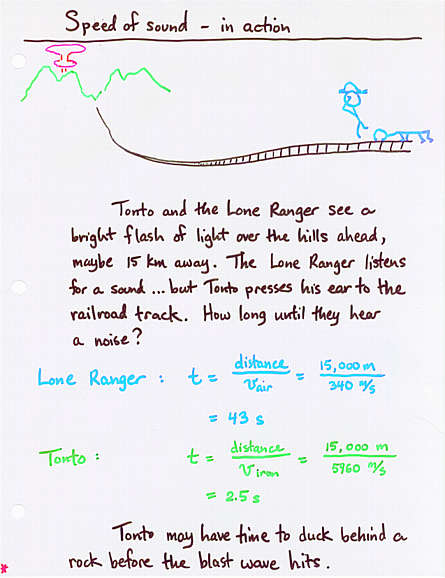 Speed of sound - in action
Tonto and the Lone Ranger see a
bright flash of light over the hills ahead,
maybe 15 km away. The Lone Ranger listens
for a sound ... but Tonto presses his ear to the
railroad track. How long until they hear
a noise?
Lone Ranger : t = distance / v air = 15,000 m / 340 m/s
= 43 s
Tonto : t = distance / v iron = 15,000 m / 5960 m/s
= 2.5 s
Tonto may have time to duck behind a
rock before the blast wave hits.
*